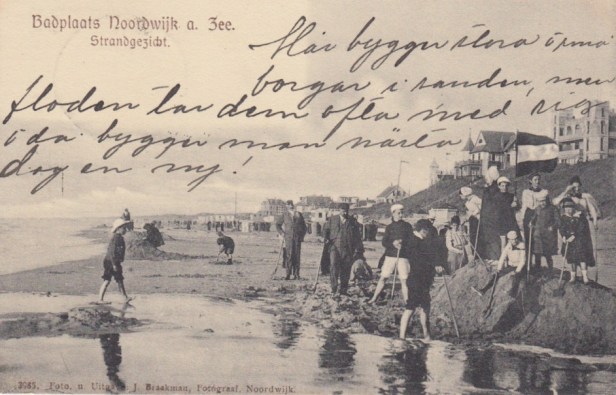 Badplaats Noordwijk a. Zee.
Strandgezicht.
Här bygger stora o små
borgar i sanden, men
floden tar dem ofta med sig
o då bygger man nästa
dag en ny!
2085. Foto. u. Uitgave J. Braakman, Fotograaf, Noordwijk.